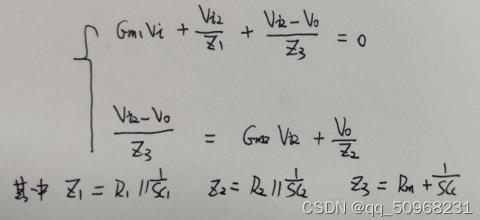 Gm1Vi + Vi2/Z1 + (Vi2-Vo)/Z3 = 0
(Vi2-Vo)/Z3 = Gm2Vi2 + Vo/Z2
其中 Z1 = R1 // 1/SC1 Z2 = R2 // 1/SC2 Z3 = Rm + 1/SCc
CSDN @qq_50968231